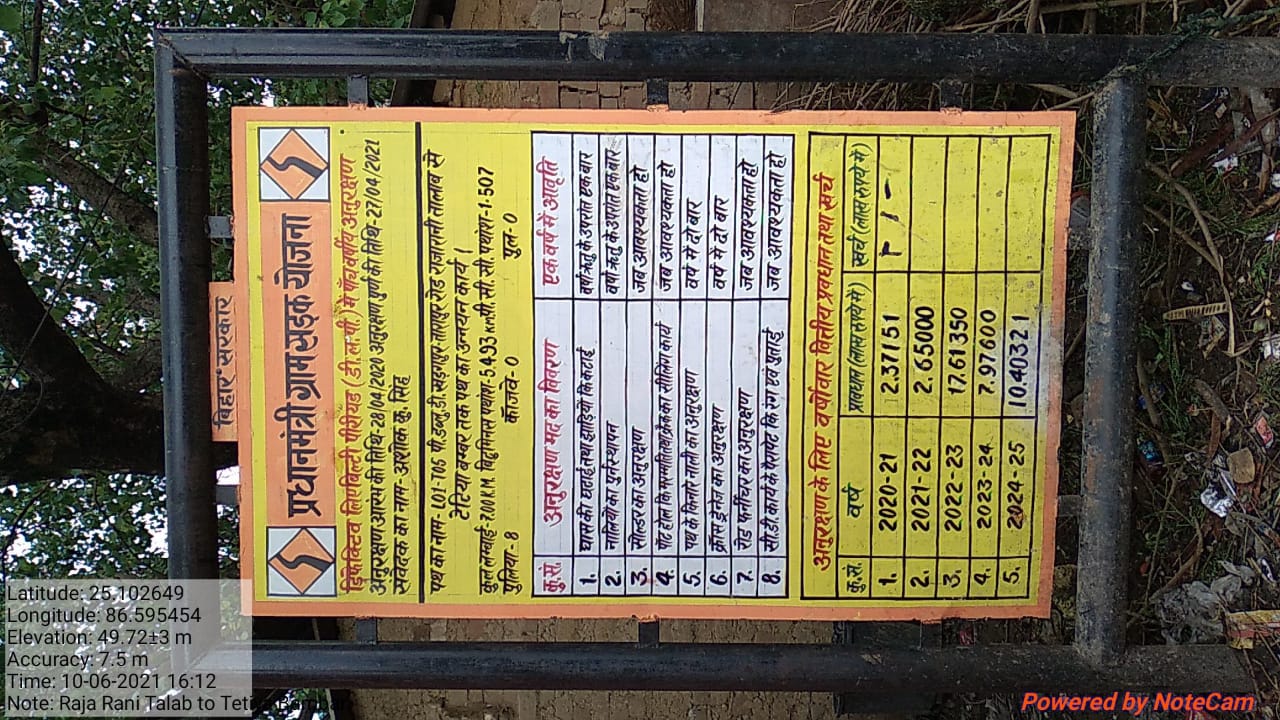 बिहार सरकार
प्रधानमंत्री ग्राम सड़क योजना
डिफेक्टिव लिएबिल्टि पीरियड (डी.ल.पी.) में पंच वर्षीय अनुरक्षण
अनुरक्षण आरम्भ की तिथि-28/04/2020 अनुरक्षण पूर्ण की तिथि-27/04/2021
संवेदक का नाम- अशोक कु. सिंह
पथ का नाम- L01-T05 पी.डब्लु.डी. खड़गपुर तारापुर रोड राजारानी तालाब से
टेटिया बम्बर तक पथ का उन्नयन कार्य ।
कुल लम्बाई- 7.00KM. बिटुमिनस पथांश-5.493 KM. पी. सी. सी. पथांश-1.507
पुलिया- 8 कॉजवे- 0 पुल- 0
कु.सं. अनुरक्षण मद का विवरण एक वर्ष में आवृति
1. घास की छटाई तथा झाड़ियों कि कटाई वर्षा ऋतु के उपरांत एक बार
2. नालियों का पुर्नस्थापन वर्षा ऋतु के उपरांत एक बार
3. सोल्डर का अनुरक्षण जब आवश्यकता हो
4. पॉट होल कि मरम्मति तथा क्रैक का सीलिंग कार्य जब आवश्यकता हो
5. पथ के किनारे नाली का अनुरक्षण वर्ष में दो बार
6. क्रॉस ड्रेनेज का अनुरक्षण वर्ष में दो बार
7. रोड फर्नीचर का अनुरक्षण जब आवश्यकता हो
8. सी.डी. कार्य के पैरापेट कि रंग एवं पुताई जब आवश्यकता हो
अनुरक्षण के लिए वर्षावार वित्तीय प्रवधान तथा खर्च
कु.सं. वर्ष प्रावधान (लाख रूपये में) खर्च (लाख रूपये में)
1. 2020-21 2.37151
2. 2021-22 2.65000
3. 2022-23 17.61350
4. 2023-24 7.97600
5. 2024-25 10.40321
Latitude: 25.102649
Longitude: 86.595454
Elevation: 49.72±3 m
Accuracy: 7.5 m
Time: 10-06-2021 16:12
Note: Raja Rani Talab to Tetia Bambar
Powered by NoteCam